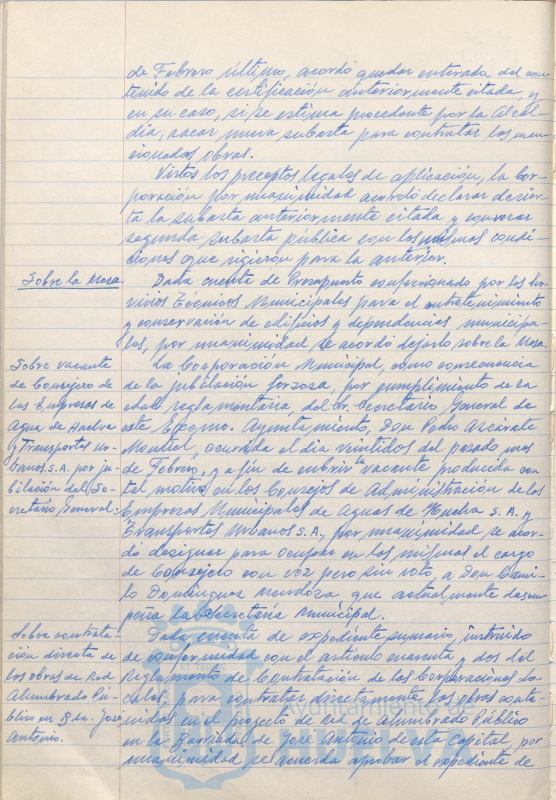 de Febrero último, acordó quedar enterada del con-
tenido de la certificación anteriormente citada, y
en su caso, si se estima procedente por la Alcal-
día, sacar nueva subasta para contratar los men-
cionados obras.
Vistos los preceptos legales de aplicación, la Cor-
poración por unanimidad acordó declarar desier-
ta la subasta anteriormente citada y convocar
segunda subasta pública con las mismas condi-
ciones que rigieron para la anterior.
Sobre la Mesa.
Dada cuenta de Presupuesto confeccionado por los Ser-
vicios Técnicos Municipales para el entretenimiento
y conservación de edificios y dependencias municipa-
les, por unanimidad se acordó dejarlo sobre la Mesa.
Sobre vacante
de Consejero de
las Empresas de
Agua de Huelva
y Transportes Ur-
banos S.A. por ju-
bilación del Se-
cretario General.
La Corporación Municipal, como consecuencia
de la jubilación forzosa, por cumplimiento de la
edad reglamentaria, del Sr. Secretario General de
este Excmo. Ayuntamiento, Don Pedro Azcárate
Montiel, ocurrida el día veintidos del pasado mes
de Febrero, y a fin de cubrir la vacante producida con
tal motivo en los Consejos de Administración de las
Empresas Municipales de Aguas de Huelva S.A. y
Transportes Urbanos S.A., por unanimidad se acor-
dó designar para ocupar en las mismas el cargo
de Consejero con voz pero sin voto, a Don Cami-
lo Domínguez Mendoza, que actualmente desem-
peña la Secretaría Municipal.
Sobre contrata-
ción directa de
las obras de Red
Alumbrado Pú-
blico en Bda. José
Antonio.
Dada cuenta de expediente sumario, instruido
de conformidad con el artículo cuarenta y dos del
Reglamento de Contratación de las Corporaciones Lo-
cales, para contratar directamente las obras conte-
nidas en el proyecto de Red de Alumbrado Público
en la Barriada de José Antonio de esta Capital, por
unanimidad se acuerda aprobar el expediente de
Ayuntamiento de
HUELVA